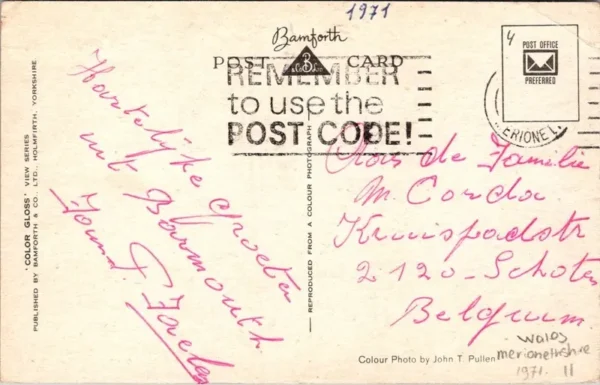 1971
Bamforth
POST CARD
REMEMBER
to use the
POST CODE!
4
POST OFFICE
PREFERRED
MERIONE
'COLOR GLOSS' VIEW SERIES
PUBLISHED BY BAMFORTH & CO. LTD., HOLMFIRTH, YORKSHIRE
REPRODUCED FROM A COLOUR PHOTOGRAPH
Hartelijke groeten
uit Barmouth
Aan de Familie
M. Corda
2120 - Schoten
Belgium
Colour Photo by John T. Pullen
Wales
merionethshire
1971. 11